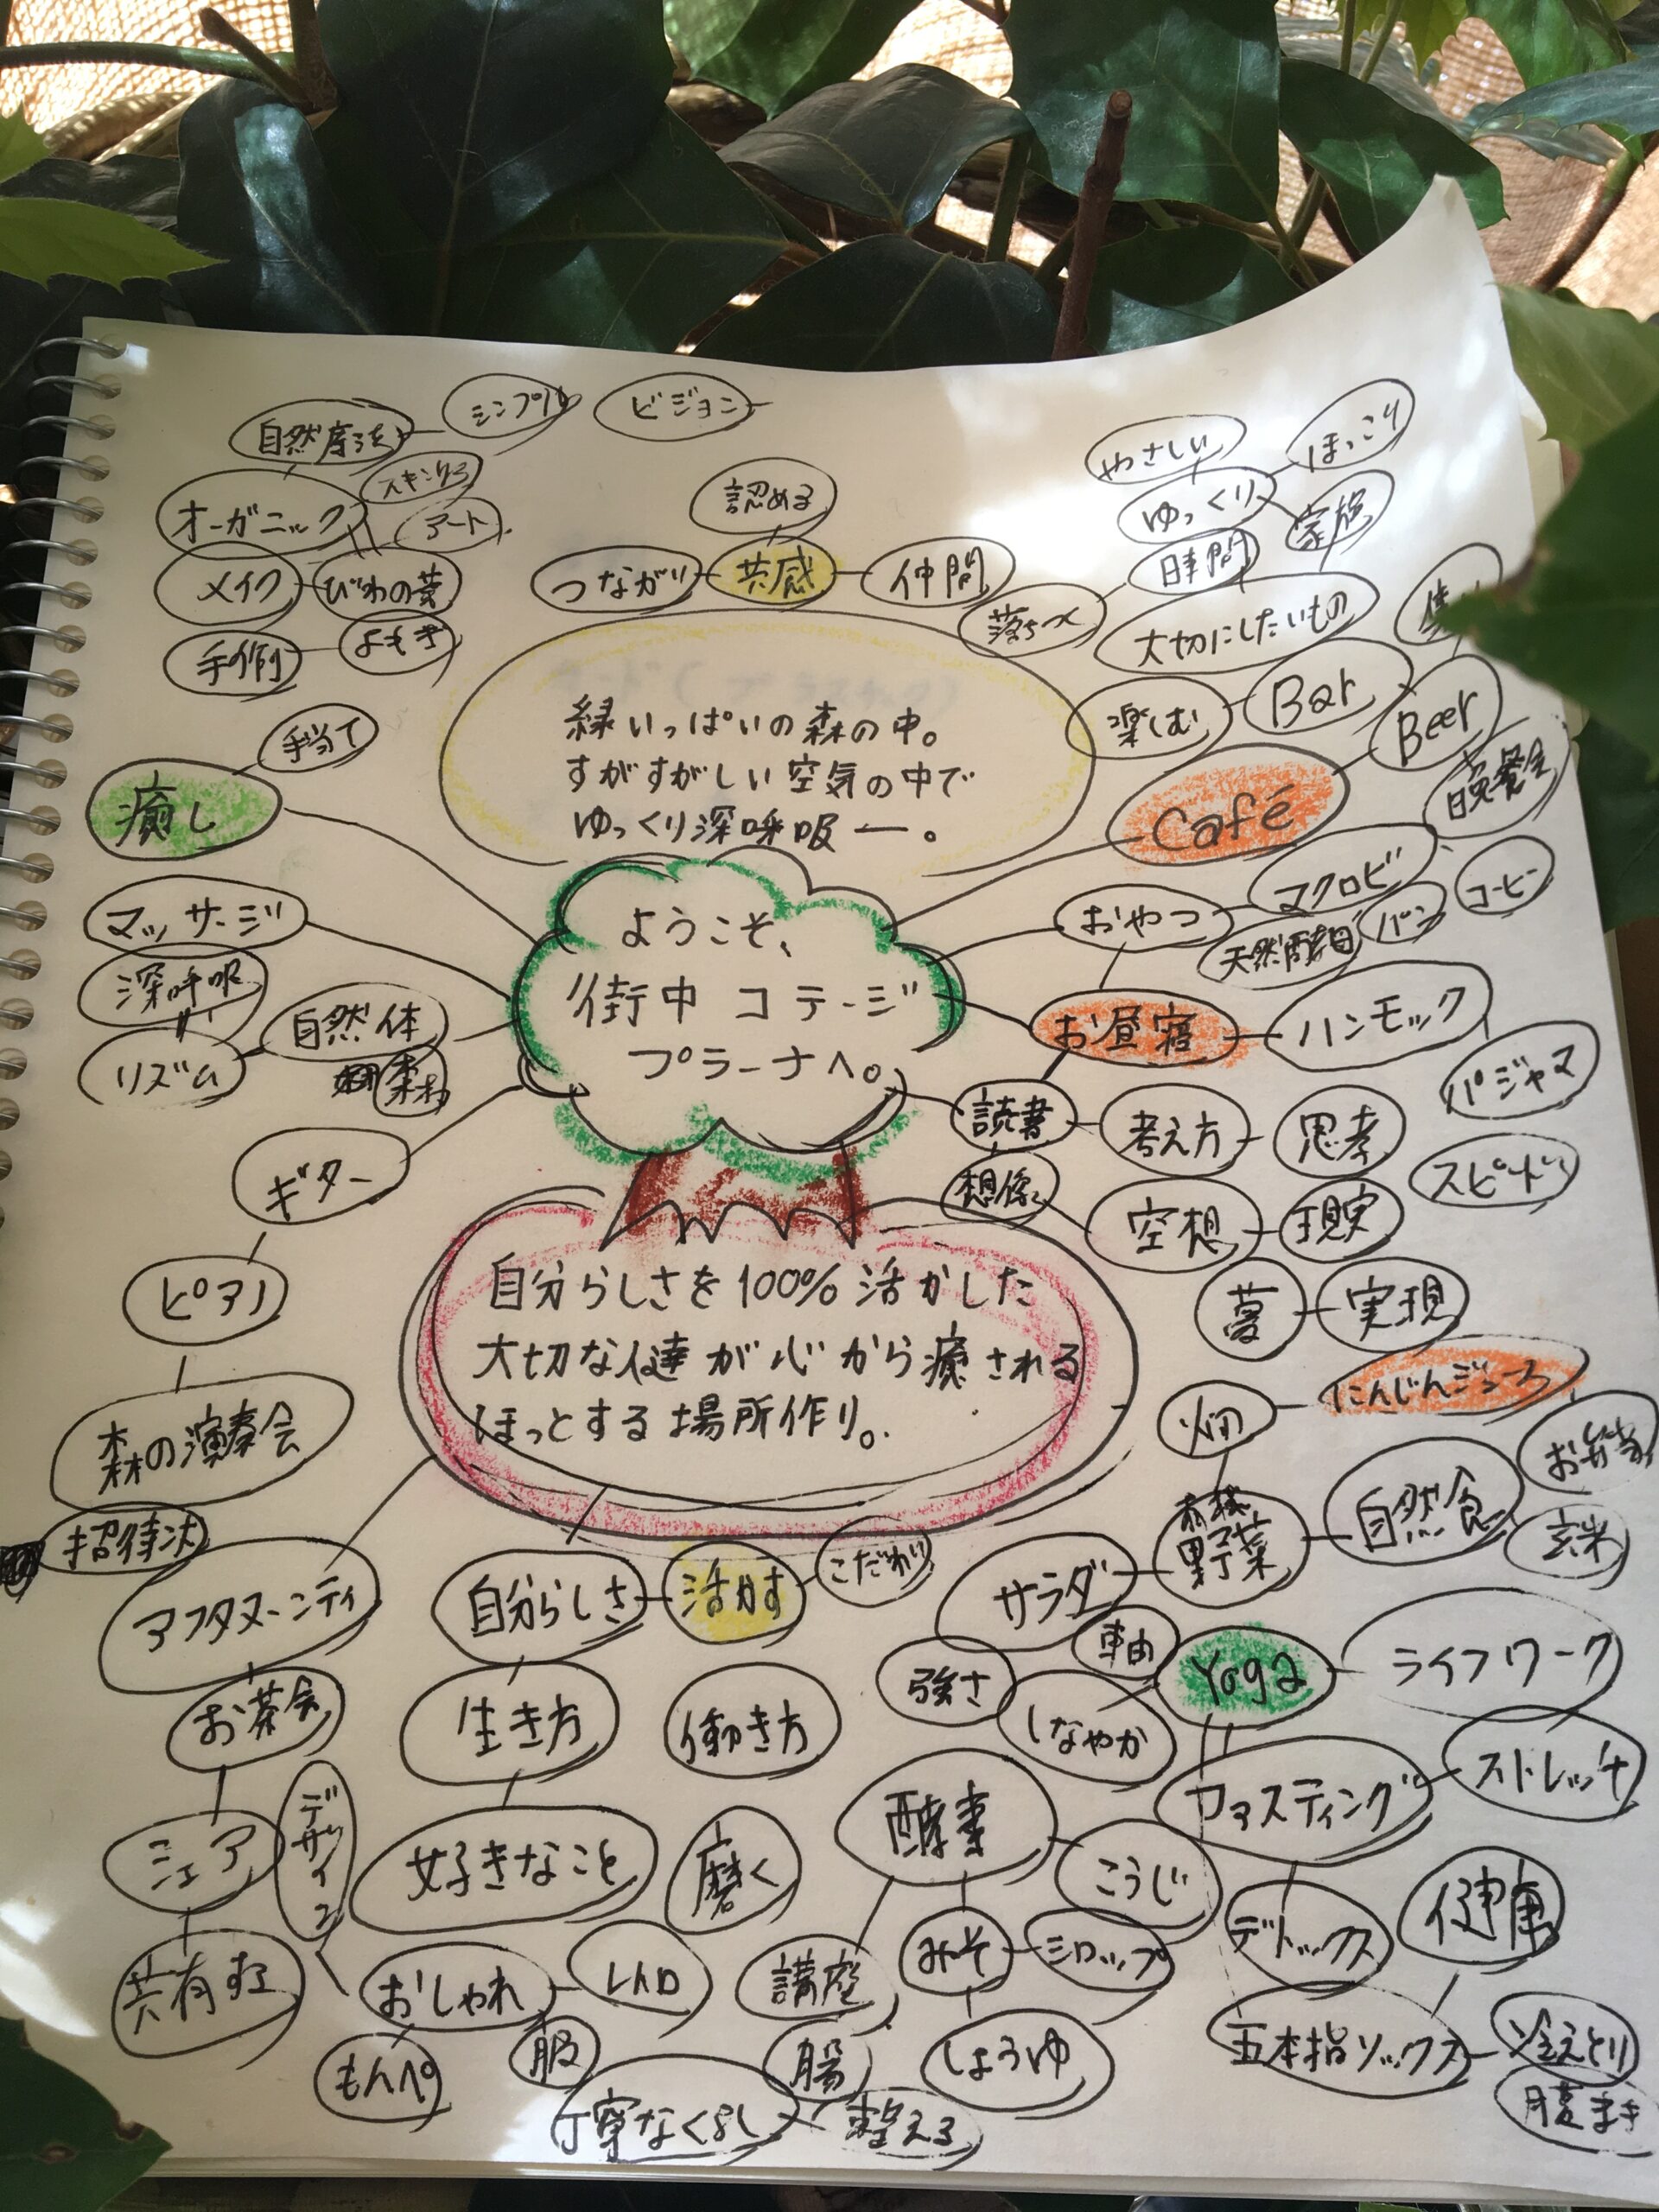 シンプル
ビジョン
自然療法
オーガニック
スキンケア
アート
メイク
びわの葉
手作り
よもぎ
手当て
癒し
認める
つながり
共感
仲間
やさしい
ほっこり
ゆっくり
家族
時間
落ちつく
大切にしたいもの
楽しむ
Bar
Beer
Café
晩餐会
緑いっぱいの森の中。
すがすがしい空気の中で
ゆっくり深呼吸ー。
ようこそ、
街中コテージ
プラーナへ。
マッサージ
深呼吸
リズム
自然体
森林
ギター
ピアノ
森の演奏会
招待状
おやつ
マクロビ
コーヒー
天然酵母
パン
お昼寝
ハンモック
パジャマ
読書
考え方
思考
スピード
想像
空想
現実
夢
実現
自分らしさを100%活かした
大切な人達が心から癒される
ほっとする場所作り。
にんじんジュース
畑
お弁当
有機
野菜
自然食
玄米
サラダ
アフタヌーンティ
お茶会
シェア
共有する
デザイン
自分らしさ
活かす
こだわり
生き方
働き方
好きなこと
磨く
おしゃれ
レトロ
もんぺ
服
丁寧なくらし
整える
軸
Yoga
ライフワーク
強さ
しなやか
ファスティング
ストレッチ
酵素
こうじ
講座
みそ
シロップ
腸
しょうゆ
デトックス
健康
五本指ソックス
冷えとり
腹まき